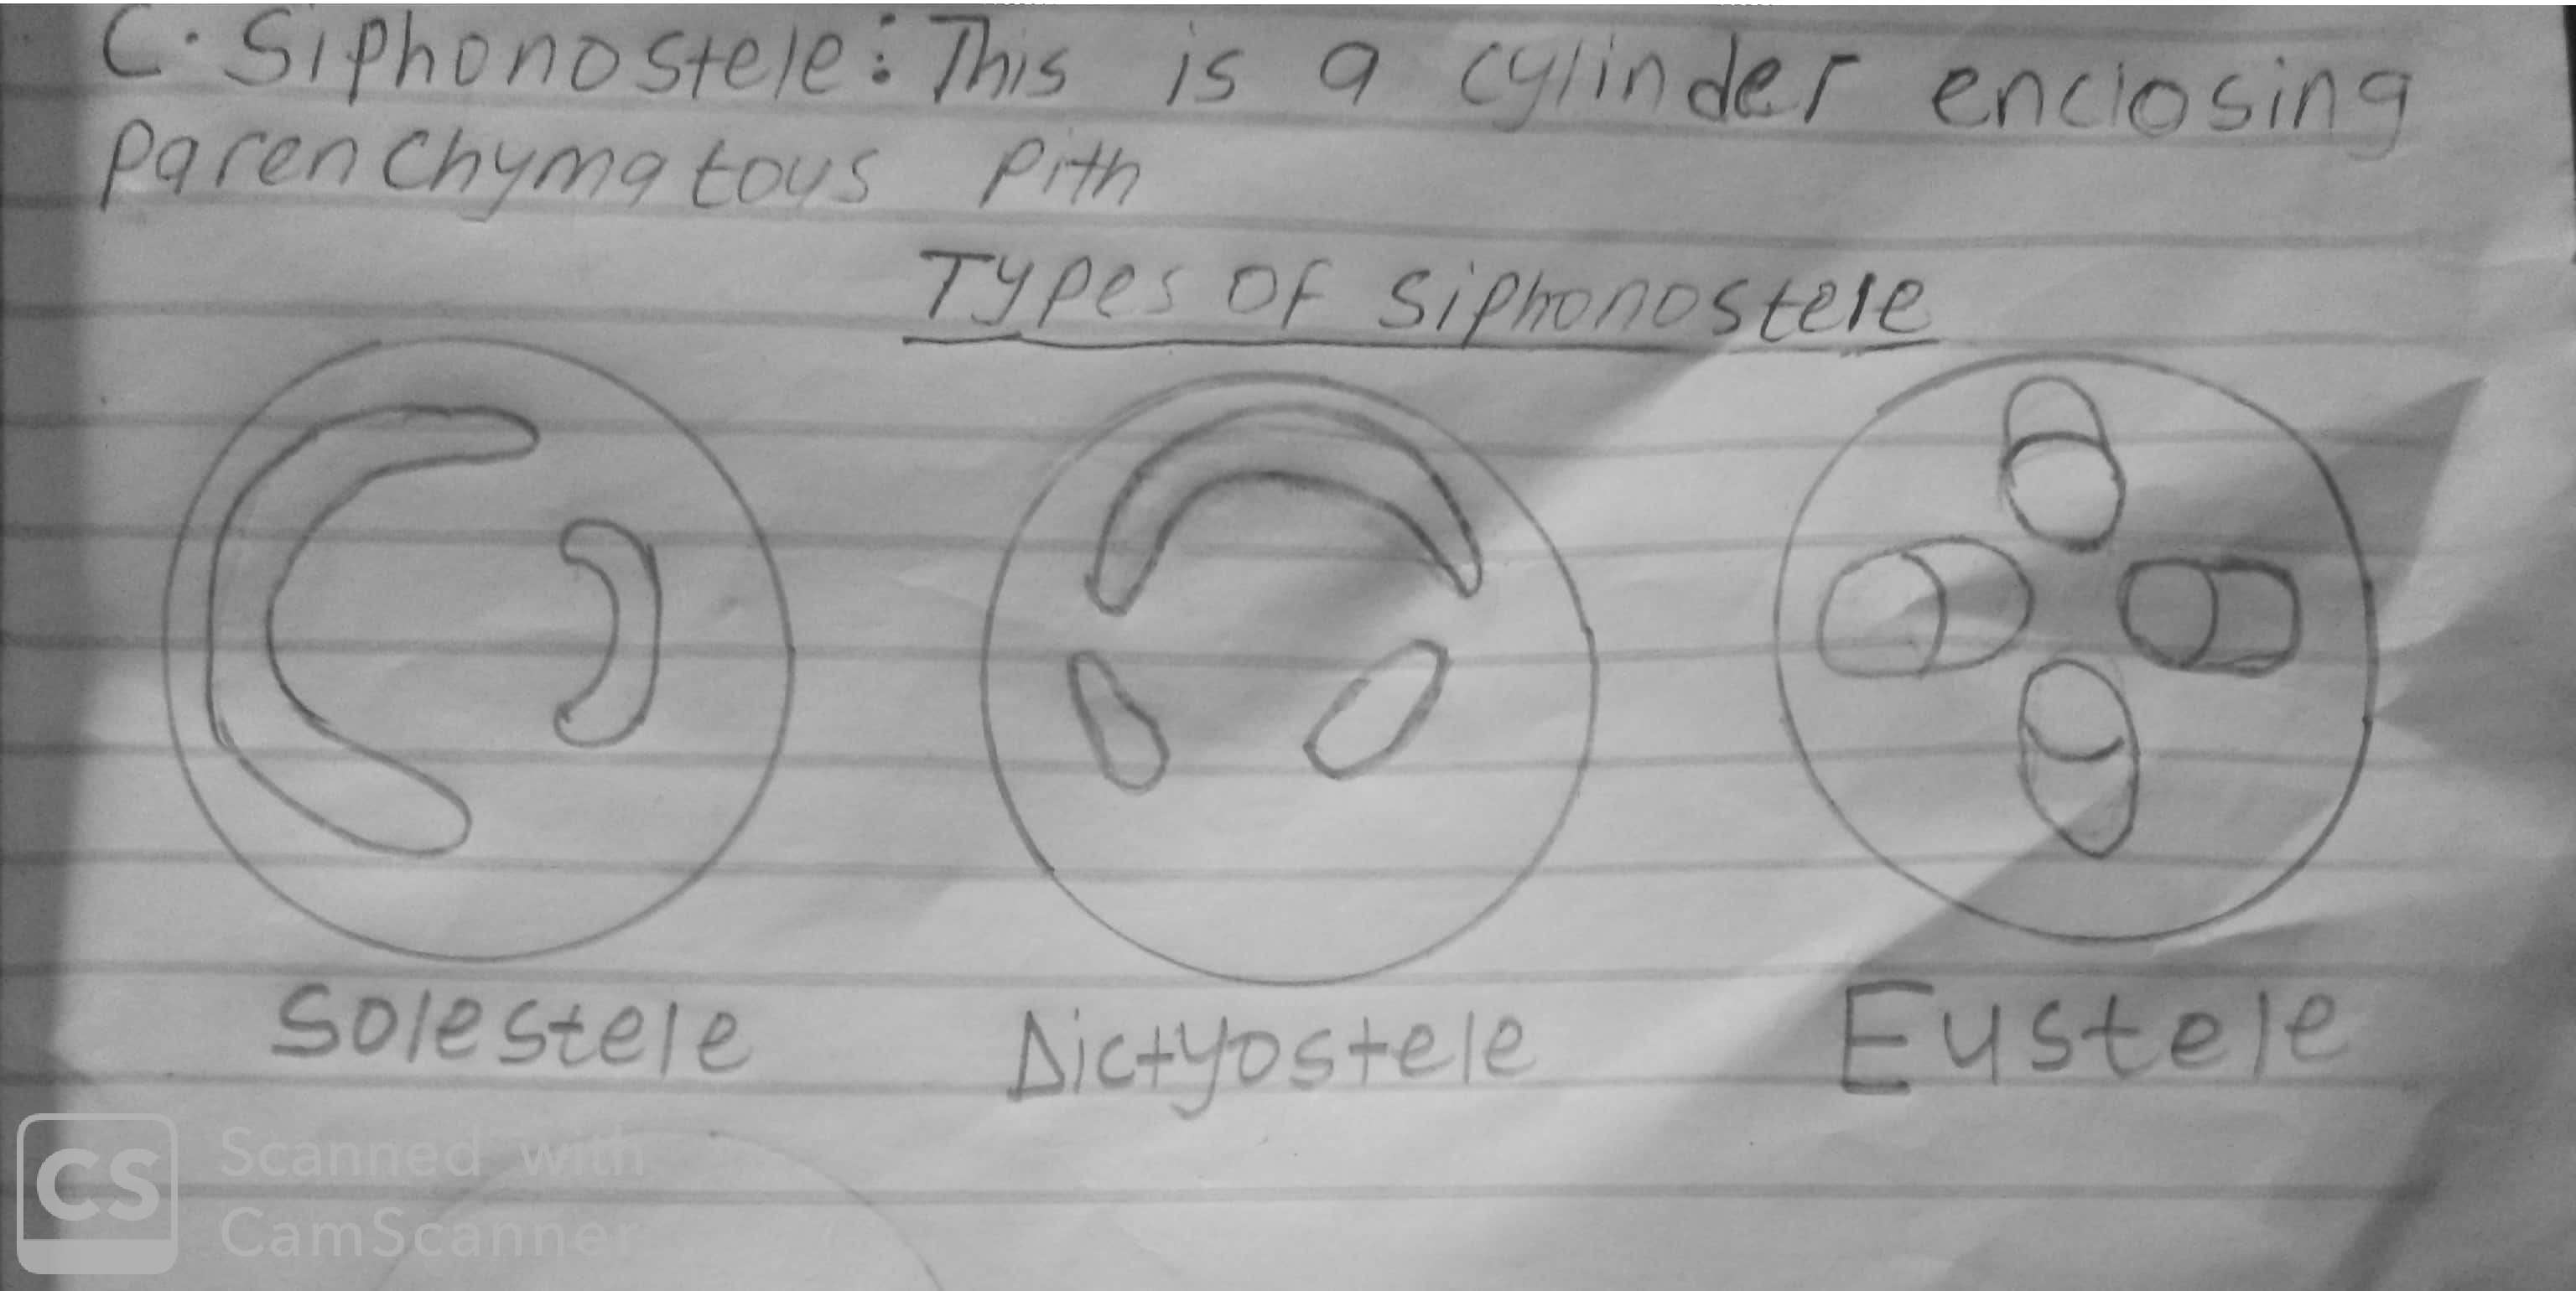 C. Siphonostele: This is a cylinder enclosing
Parenchymatous Pith
Types of Siphonostele
Solestele Dictyostele Eustele
CS Scanned with
CamScanner